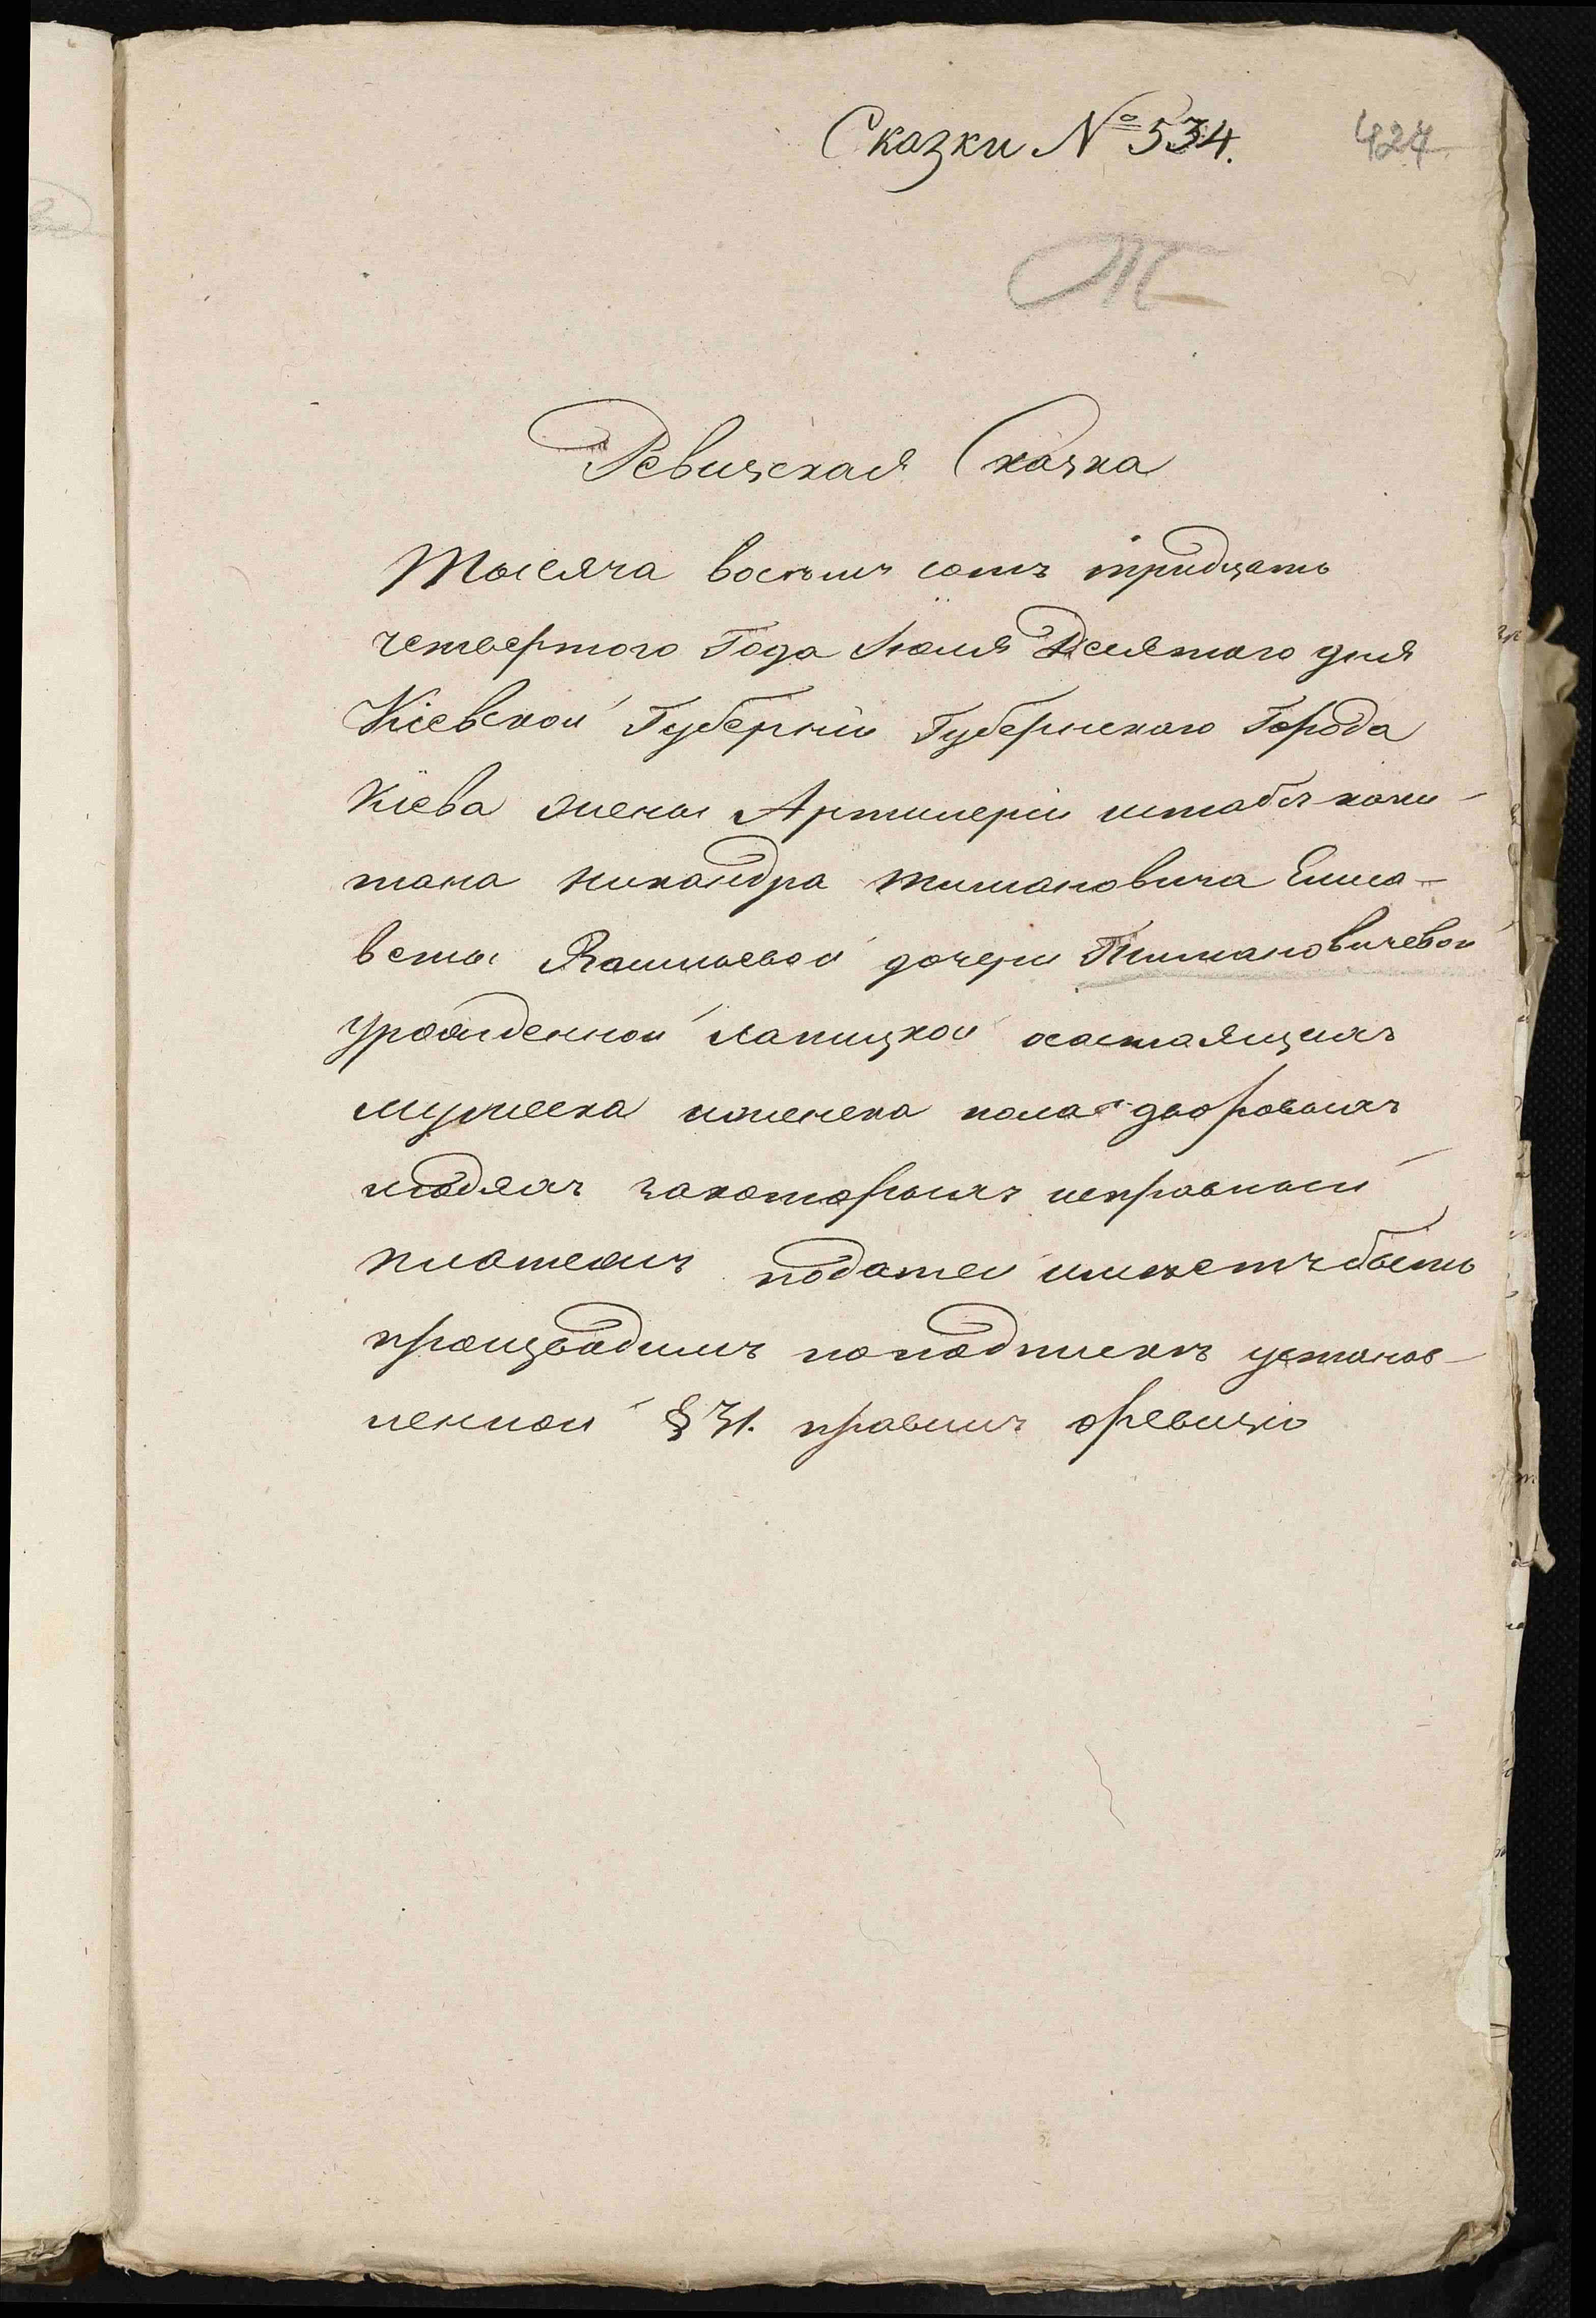 Сказки № 534.
424
Т
Ревизская Сказка
Тысяча восемъ сотъ тридцать
четвертого Года Іюля Десятого дня
Кіевской Губерніи Губернскаго Города
Кіева жены Артилеріи штабсъ капи-
тана Никандра Тимановича Елиса-
веты Васильевой дочери Тимановичевой
урожденной Лапицкой о состаящихъ
мужеска иженска пола дворовыхъ
людяхъ закоторыхъ исправный
платежъ податей имеетъ быть
произвадимъ поподпискѣ установ-
ленной § 71. правилъ оревизіи